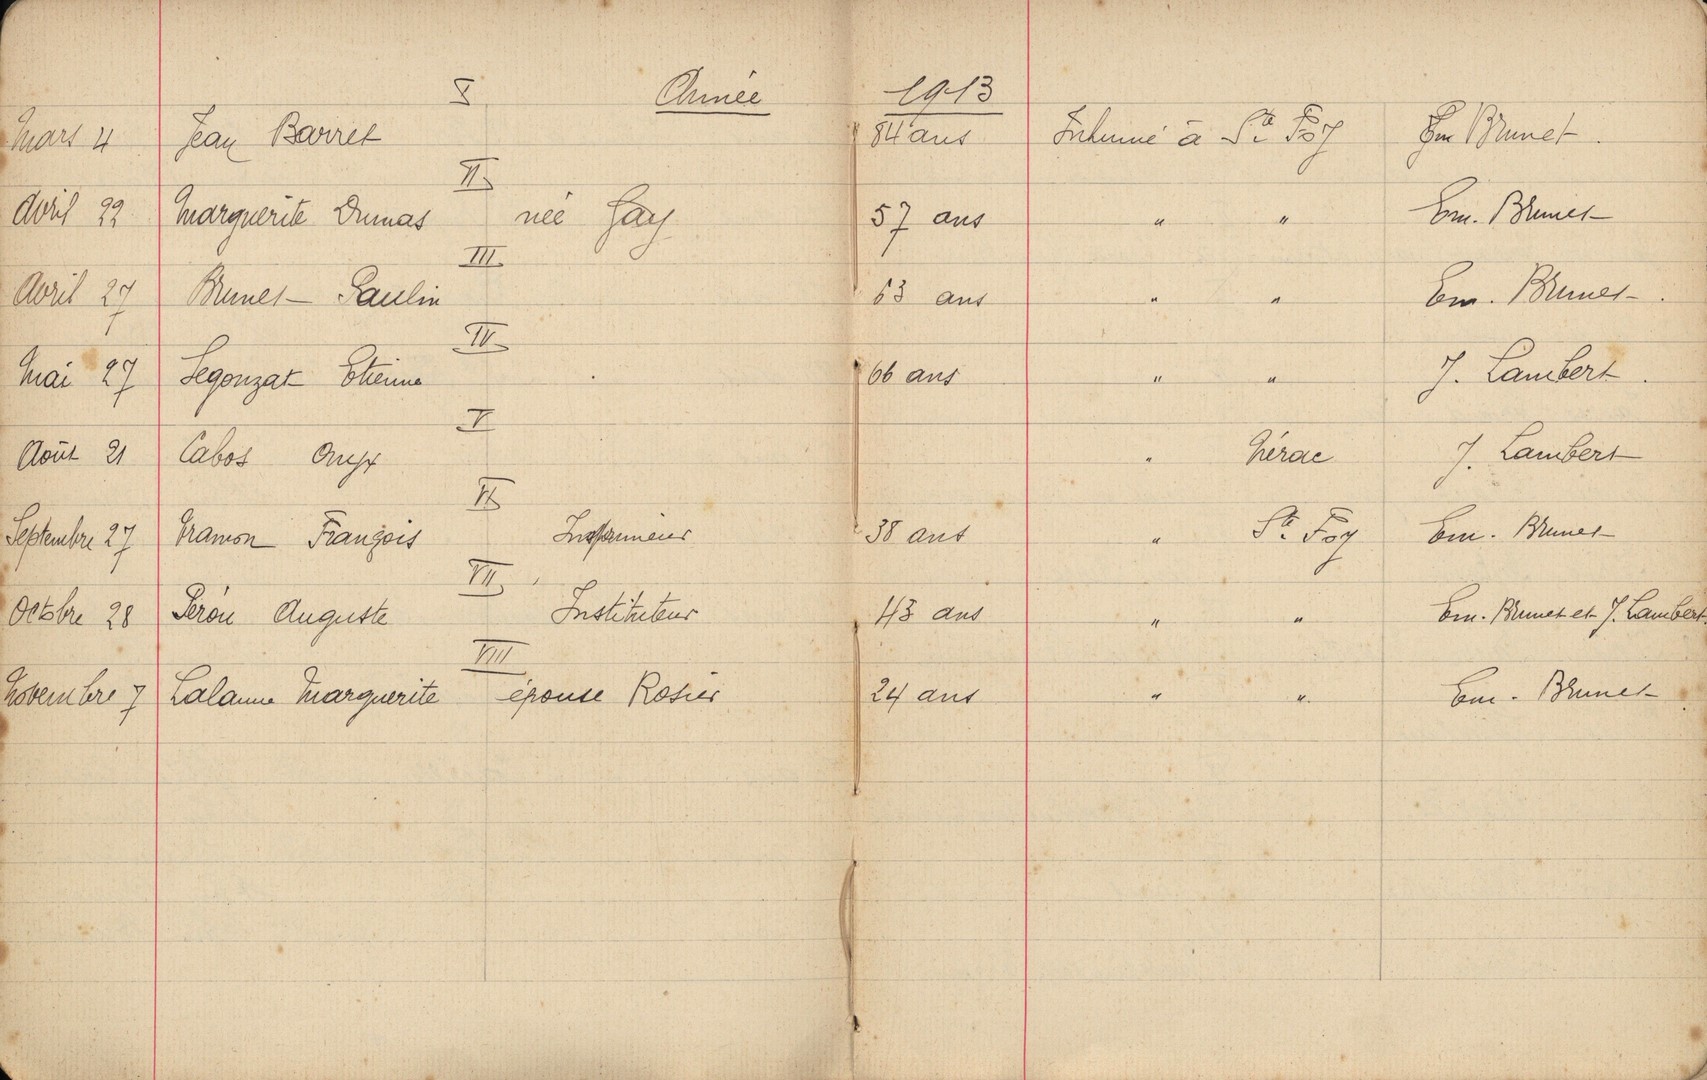 I Année 1913
Mars 4 Jean Barret 84 ans Inhumé à Ste Foy Em Brunet.
II
Avril 22 Marguerite Dumas née Gay 57 ans " " Em. Brunet
III
Avril 27 Brunet Paulin 63 ans " " Em. Brunet.
IV
Mai 27 Segonzat Etienne 66 ans " " J. Lambert.
V
Août 21 Cabos " Nérac J. Lambert
VI
Septembre 27 François 38 ans " Ste Foy Em. Brunet
VII
Octobre 28 Auguste Instituteur 43 ans " " Em. Brunet et J. Lambert.
VIII
Novembre 7 Lalanne Marguerite épouse Rosier 24 ans " " Em. Brunet